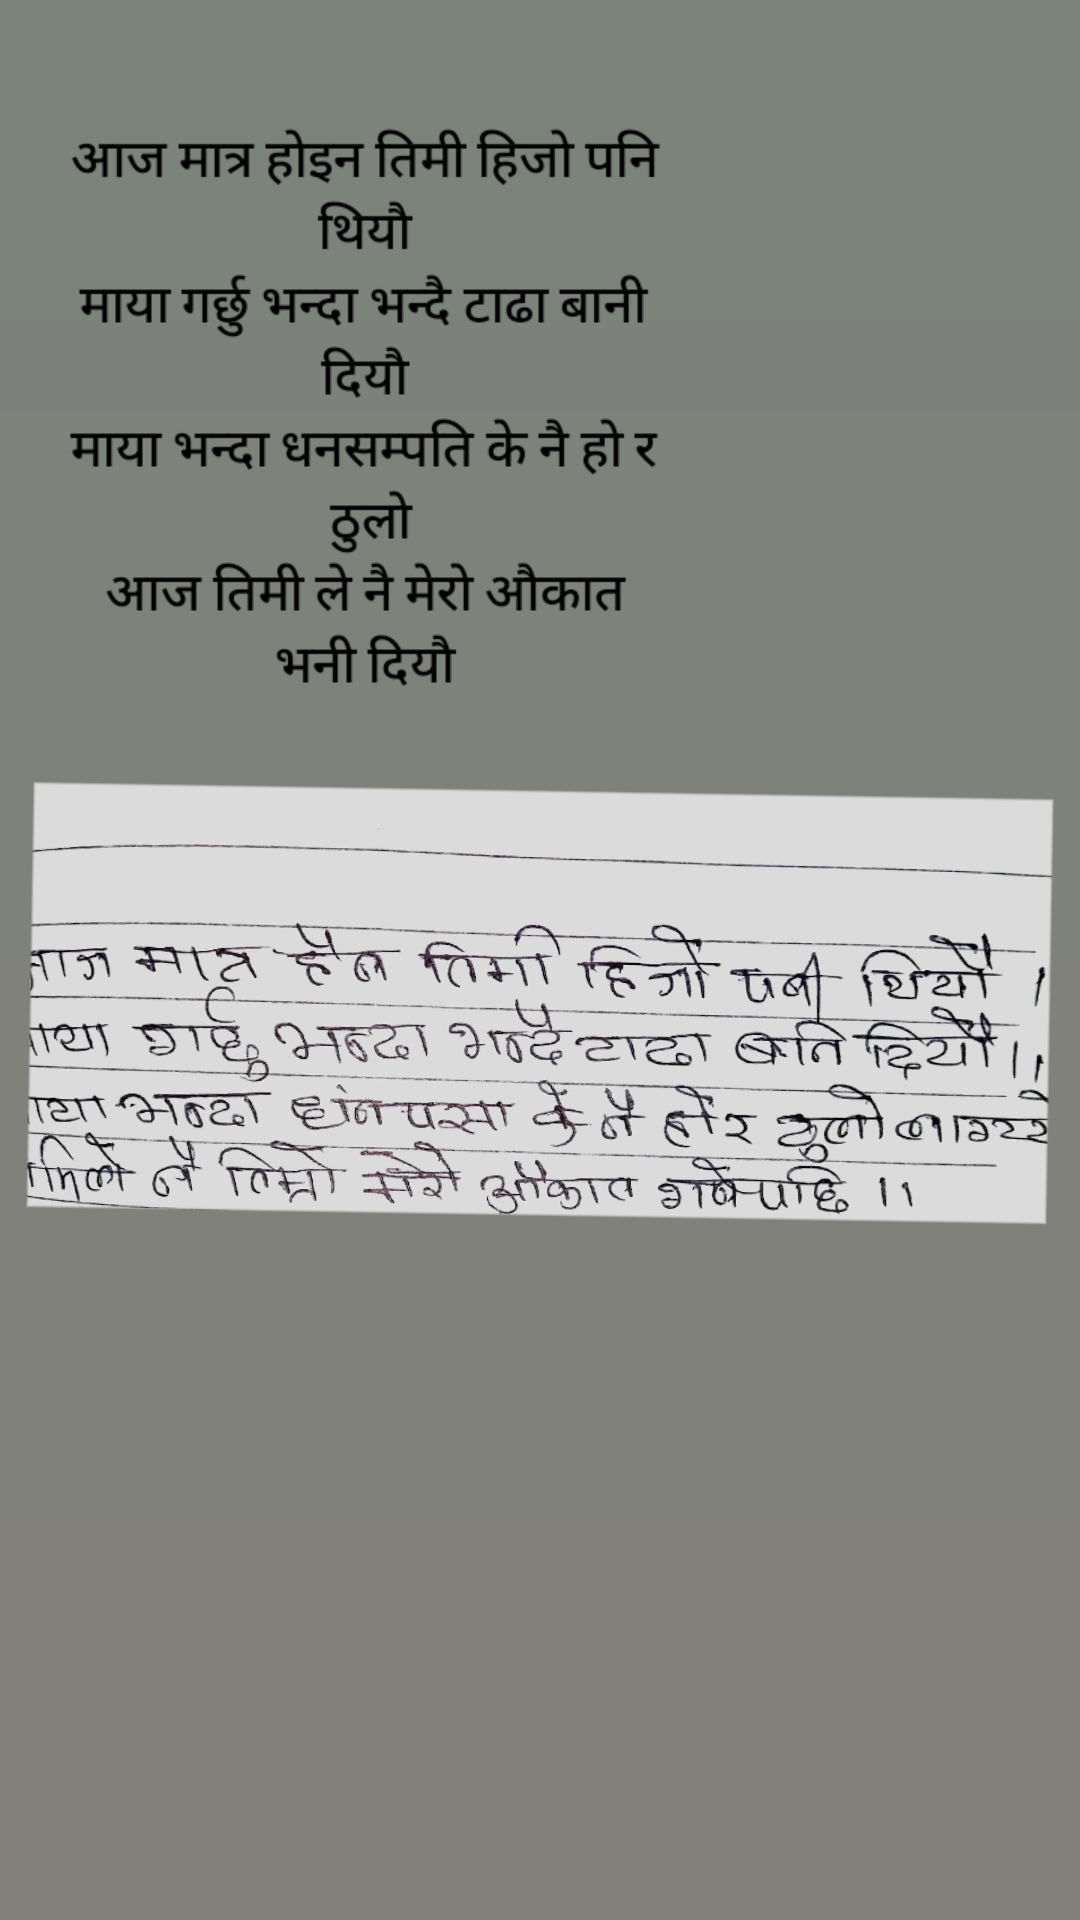 आज मात्र होइन तिमी हिजो पनि
थियौ
माया गर्छु भन्दा भन्दै टाढा बानी
दियौ
माया भन्दा धनसम्पति के नै हो र
ठुलो
आज तिमी ले नै मेरो औकात
भनी दियौ
आज मात्र हैन तिमी हिजो पनी थियौ ।
माया गर्छु भन्दा भन्दै टाढा बानि दियौ ।।
माया भन्दा धंन पैसा के नै होर ठुलो
नै तिम्रो मेरो औकात ।।